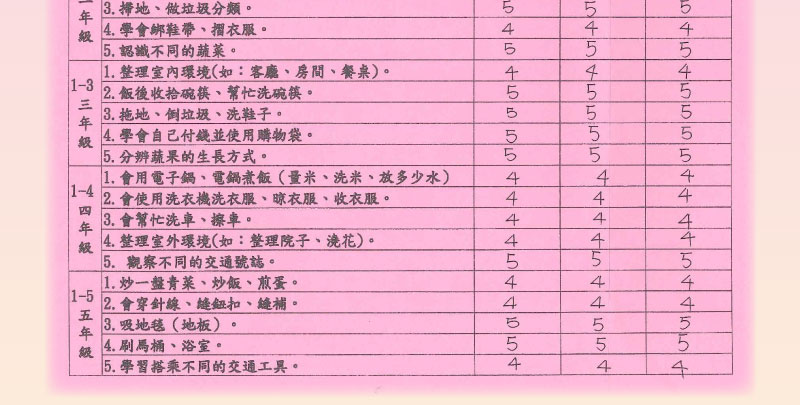 3.掃地、做垃圾分類。 5 5 5
年 4.學會綁鞋帶、摺衣服。 4 4 4
級 5.認識不同的蔬菜。 5 5 5
1.整理室內環境(如：客廳、房間、餐桌)。 4 4 4
1-3 2.飯後收拾碗筷、幫忙洗碗筷。 5 5 5
三 3.拖地、倒垃圾、洗鞋子。 5 5 5
年 4.學會自己付錢並使用購物袋。 5 5 5
級 5.分辨蔬果的生長方式。 5 5 5
1.會用電子鍋、電鍋煮飯（量米、洗米、放多少水） 4 4 4
1-4 2.會使用洗衣機洗衣服、晾衣服、收衣服。 4 4 4
四 3.會幫忙洗車、擦車。 4 4 4
年 4.整理室外環境(如：整理院子、澆花)。 4 4 4
級 5. 觀察不同的交通號誌。 5 5 5
1.炒一盤青菜、炒飯、煎蛋。 4 4 4
1-5 2.會穿針線、縫鈕扣、縫補。 4 4 4
五 3.吸地毯（地板）。 5 5 5
年 4.刷馬桶、浴室。 5 5 5
級 5.學習搭乘不同的交通工具。 4 4 4